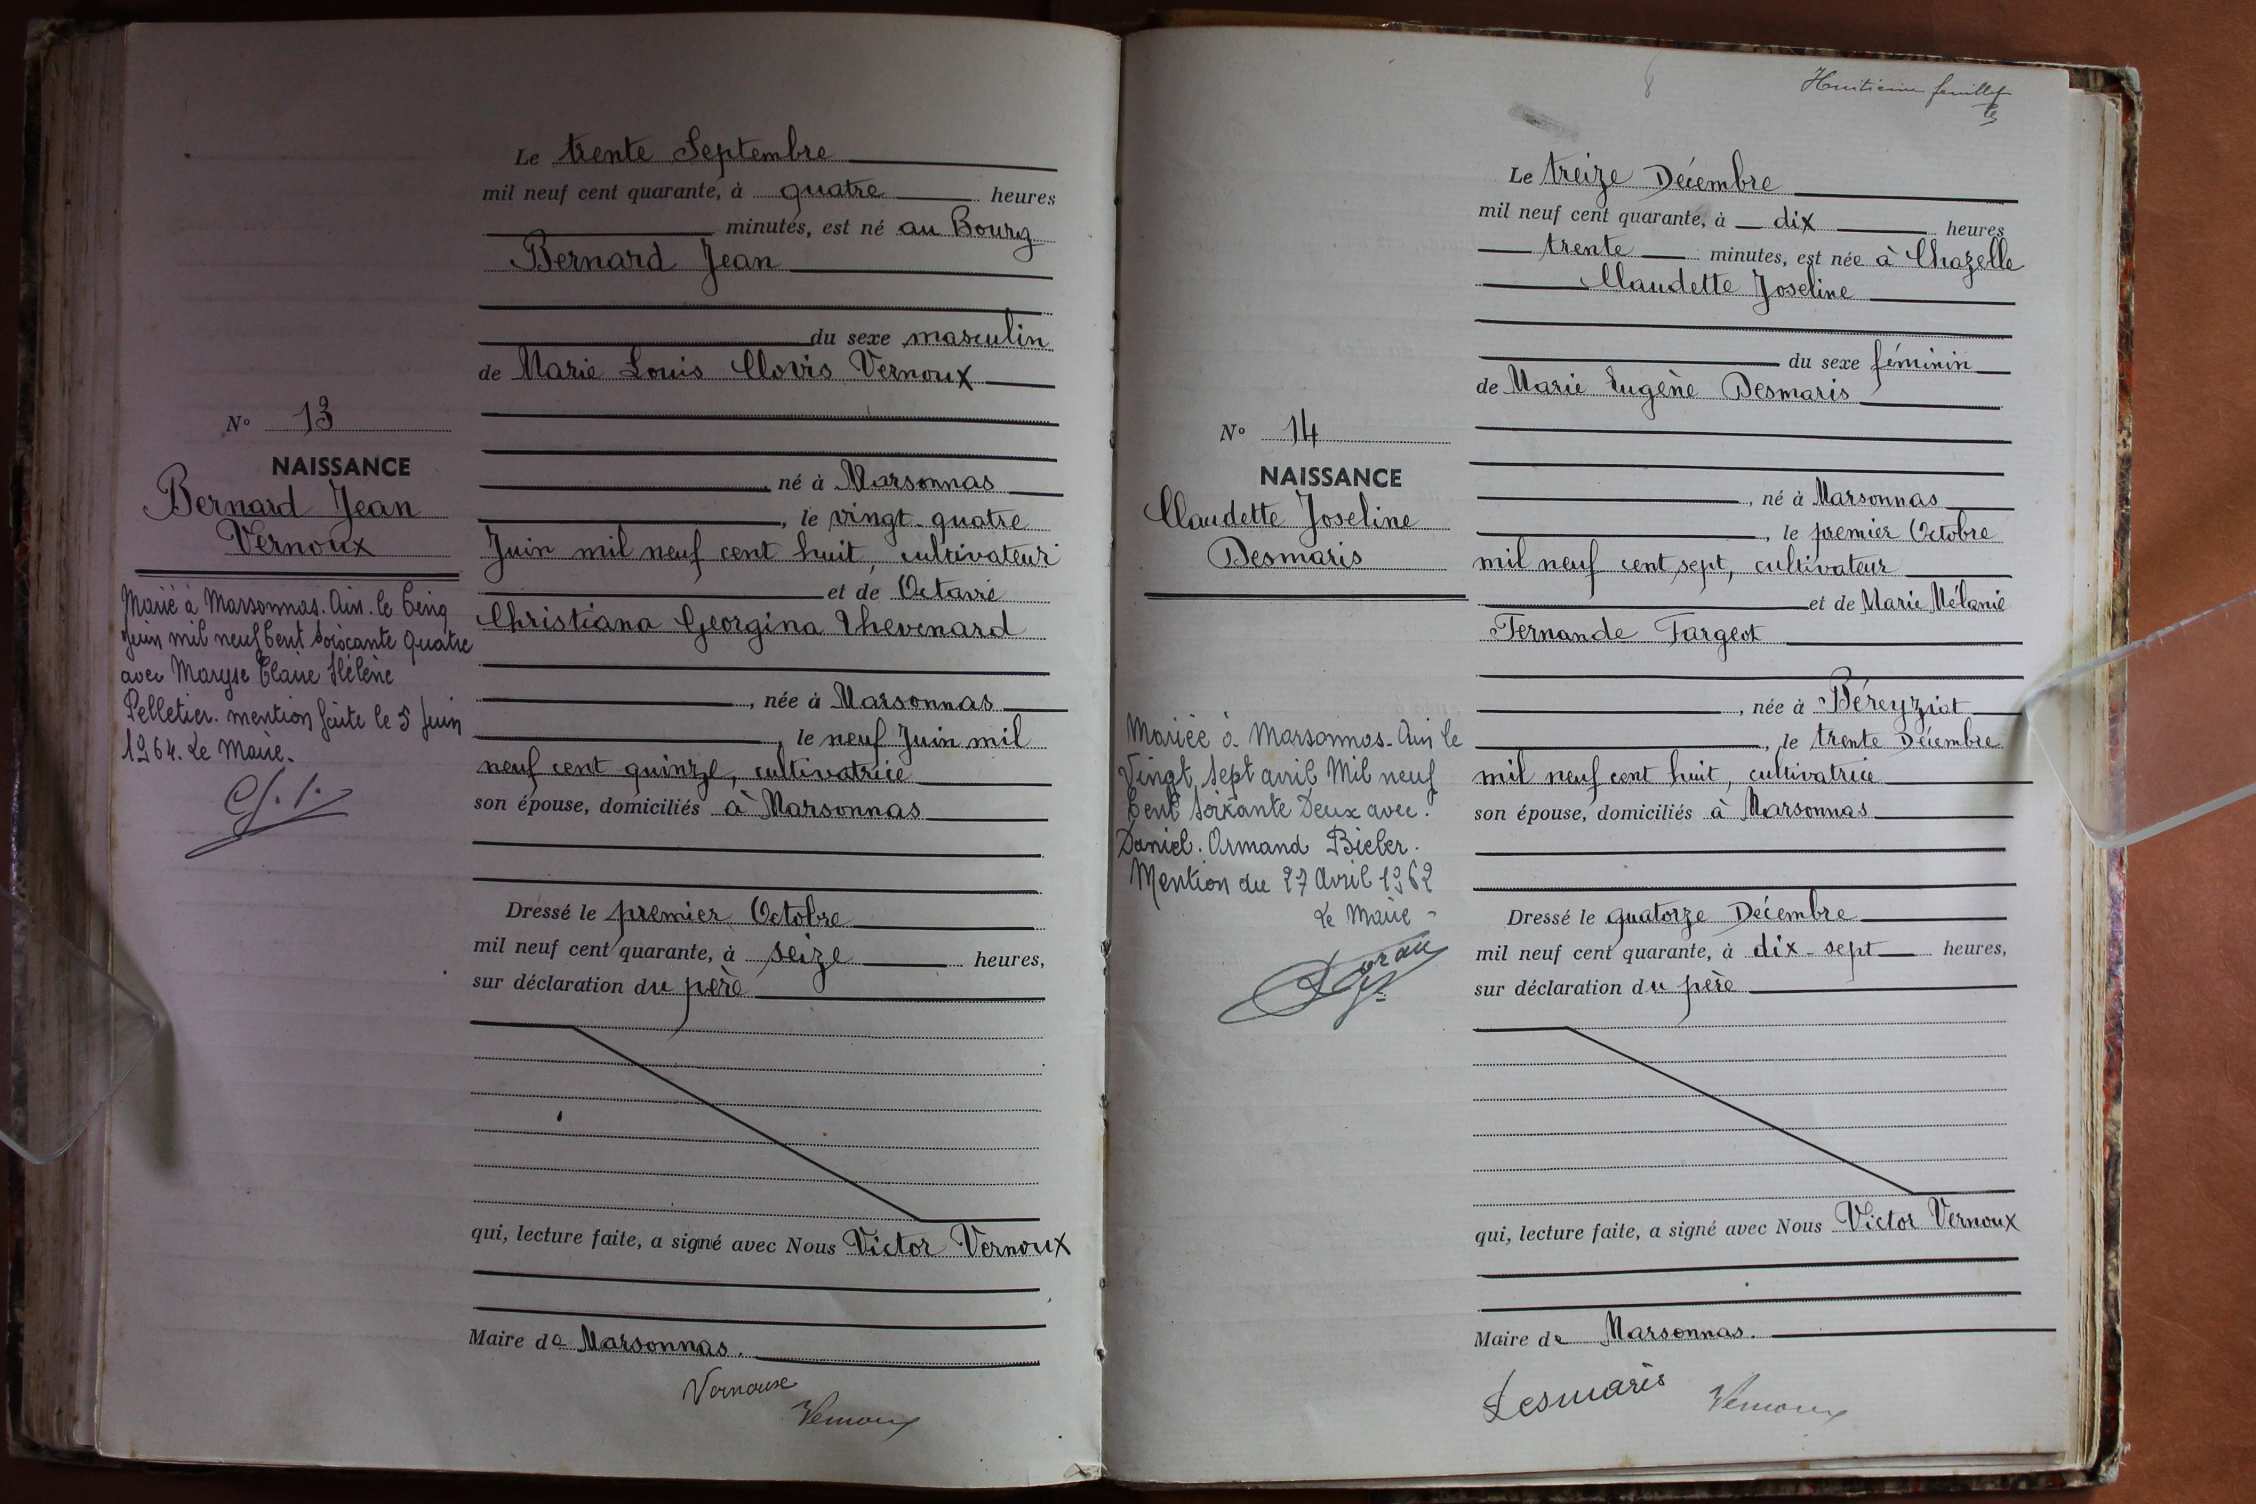 Le trente Septembre
mil neuf cent quarante, à quatre heures
minutes, est né au Bourg
Bernard Jean
du sexe masculin
de Marie Louis Clovis Vernoux
né à Marsonnas
, le vingt-quatre
Juin mil neuf cent huit, cultivateur
et de Octavie
Christiana Georgina Thevenard
, née à Marsonnas
, le neuf Juin mil
neuf cent quinze, cultivatrice
son épouse, domiciliés à Marsonnas
Dressé le premier Octobre
mil neuf cent quarante, à seize heures,
sur déclaration du père
qui, lecture faite, a signé avec Nous Victor Vernoux
Maire de Marsonnas.
Vernoux
Vernoux
No 13
NAISSANCE
Bernard Jean
Vernoux
Marié à Marsonnas. Ain. le Cinq
Juin mil neuf Cent Soixante quatre
avec Maryse Claire Hélène
Pelletier. mention faite le 5 Juin
1964. Le Maire.
Huitième feuillet
8
Le treize Décembre
mil neuf cent quarante, à dix heures
trente minutes, est née à Chazelle
Claudette Joseline
du sexe féminin
de Marie Eugène Desmaris
, né à Marsonnas
, le premier Octobre
mil neuf cent sept, cultivateur
et de Marie Mélanie
Fernande Fargeot
, née à Béreyziat
, le trente Décembre
mil neuf cent huit, cultivatrice
son épouse, domiciliés à Marsonnas
Dressé le quatorze Décembre
mil neuf cent quarante, à dix-sept heures,
sur déclaration du père
qui, lecture faite, a signé avec Nous Victor Vernoux
Maire de Marsonnas.
Desmaris
Vernoux
No 14
NAISSANCE
Claudette Joseline
Desmaris
Mariée à Marsonnas-Ain le
Vingt Sept avril Mil neuf
Cent Soixante Deux avec.
Daniel. Armand Bieler.
Mention du 27 Avril 1962
Le Maire -